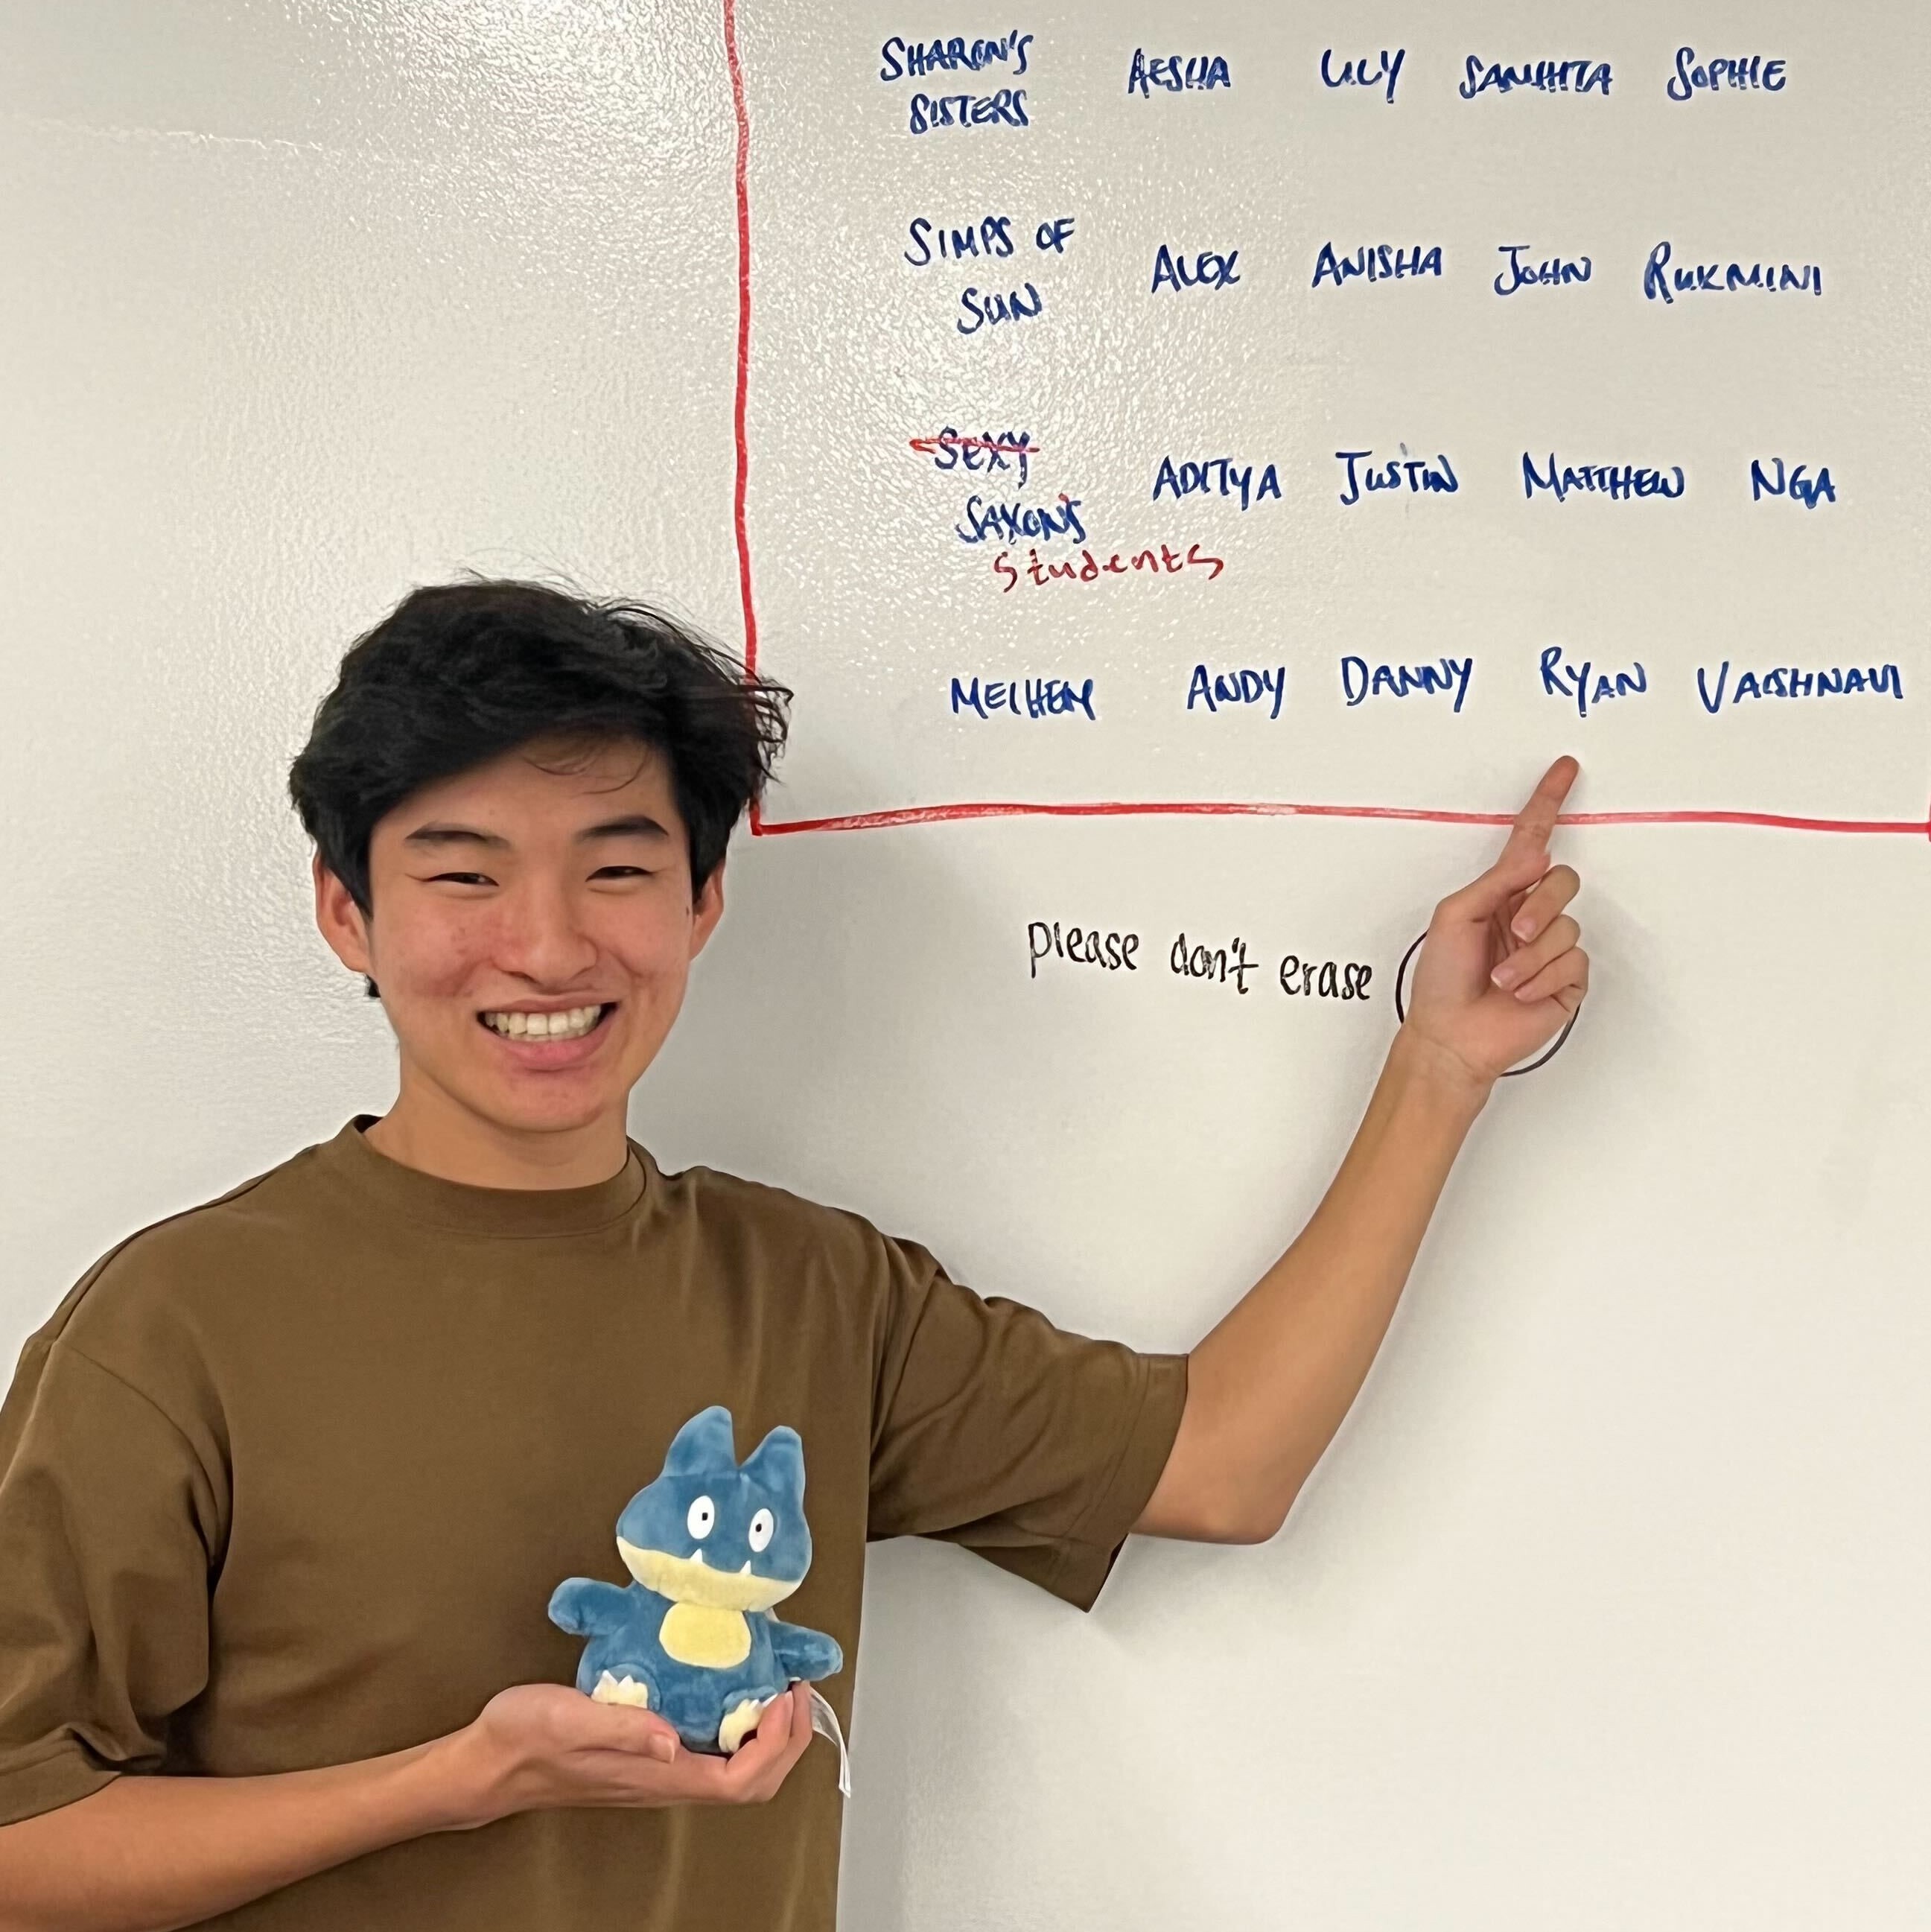 SHARON'S SISTERS AESHA LILY SAMHITA SOPHIE
SIMPS OF SUN ALEX ANISHA JOHN RUKMINI
SEXY SAXON'S students ADITYA JUSTIN MATTHEW NGA
MEIHEM ANDY DANNY RYAN VAISHNAVI
please don't erase